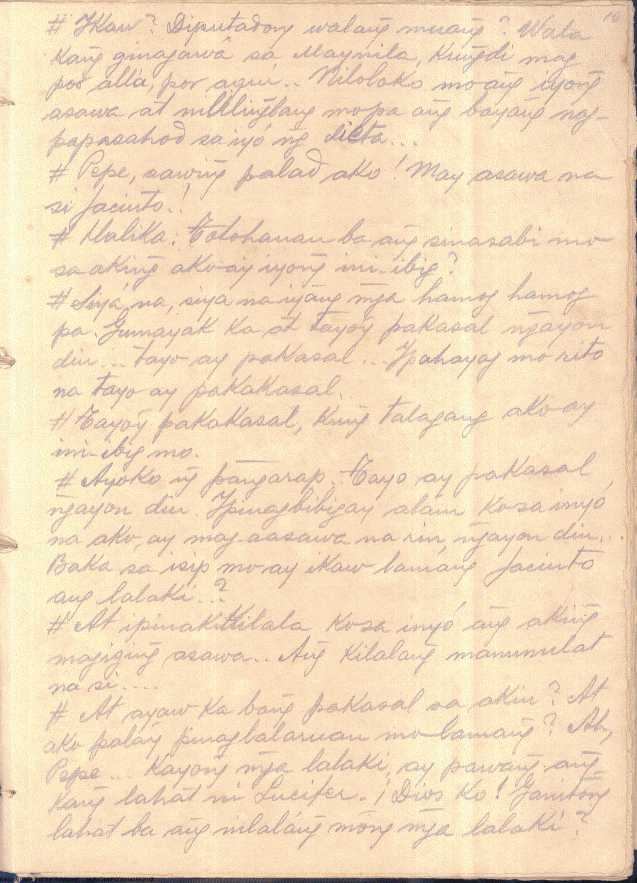 # Ikaw? Diputadong walang muang? Wala
kang ginagawâ sa Maynila, kungdi mag
por alla, por aqui.. Niloloko mo ang iyong
asawa at nililinglang mo pa ang bayang nag-
papasahod sa iyó ng dieta...
# Pepe, sawing palad ako! May asawa na
si Jacinto.!
# Halika. Totohanan ba ang sinasabi mo
sa aking ako-ay iyong ini-ibig?
# Siyá, na, siya na iyang mga hamog hamog
pa. Gumayak ka at tayo'y pakasal ngayon
din... tayo ay pakasal... Ipahayag mo rito
na tayo ay pakakasal..
# Tayo'y pakakasal, kung talagang ako-ay
ini-ibig mo.
# Ayoko ng pangarap. Tayo ay pakasal
ngayon din. Ipinagbibigay alam ko sa inyó
na ako ay mag-aasawa na rin ngayon din...
Baka sa isip mo ay ikaw lamang Jacinto
ang lalaki...?
# At ipinakikilala ko sa inyó ang aking
magiging asawa.. Ang kilalang manunulat
na si....
# At ayaw ka bang pakasal sa akin? At
ako palay pinaglalaruan mo lamang? Ah,
Pepe... kayong mga lalaki, ay pawang ang
kang lahat ni Lucifer. ¡Dios ko! Ganitong
lahat ba ang nilaláng mong mga lalaki?